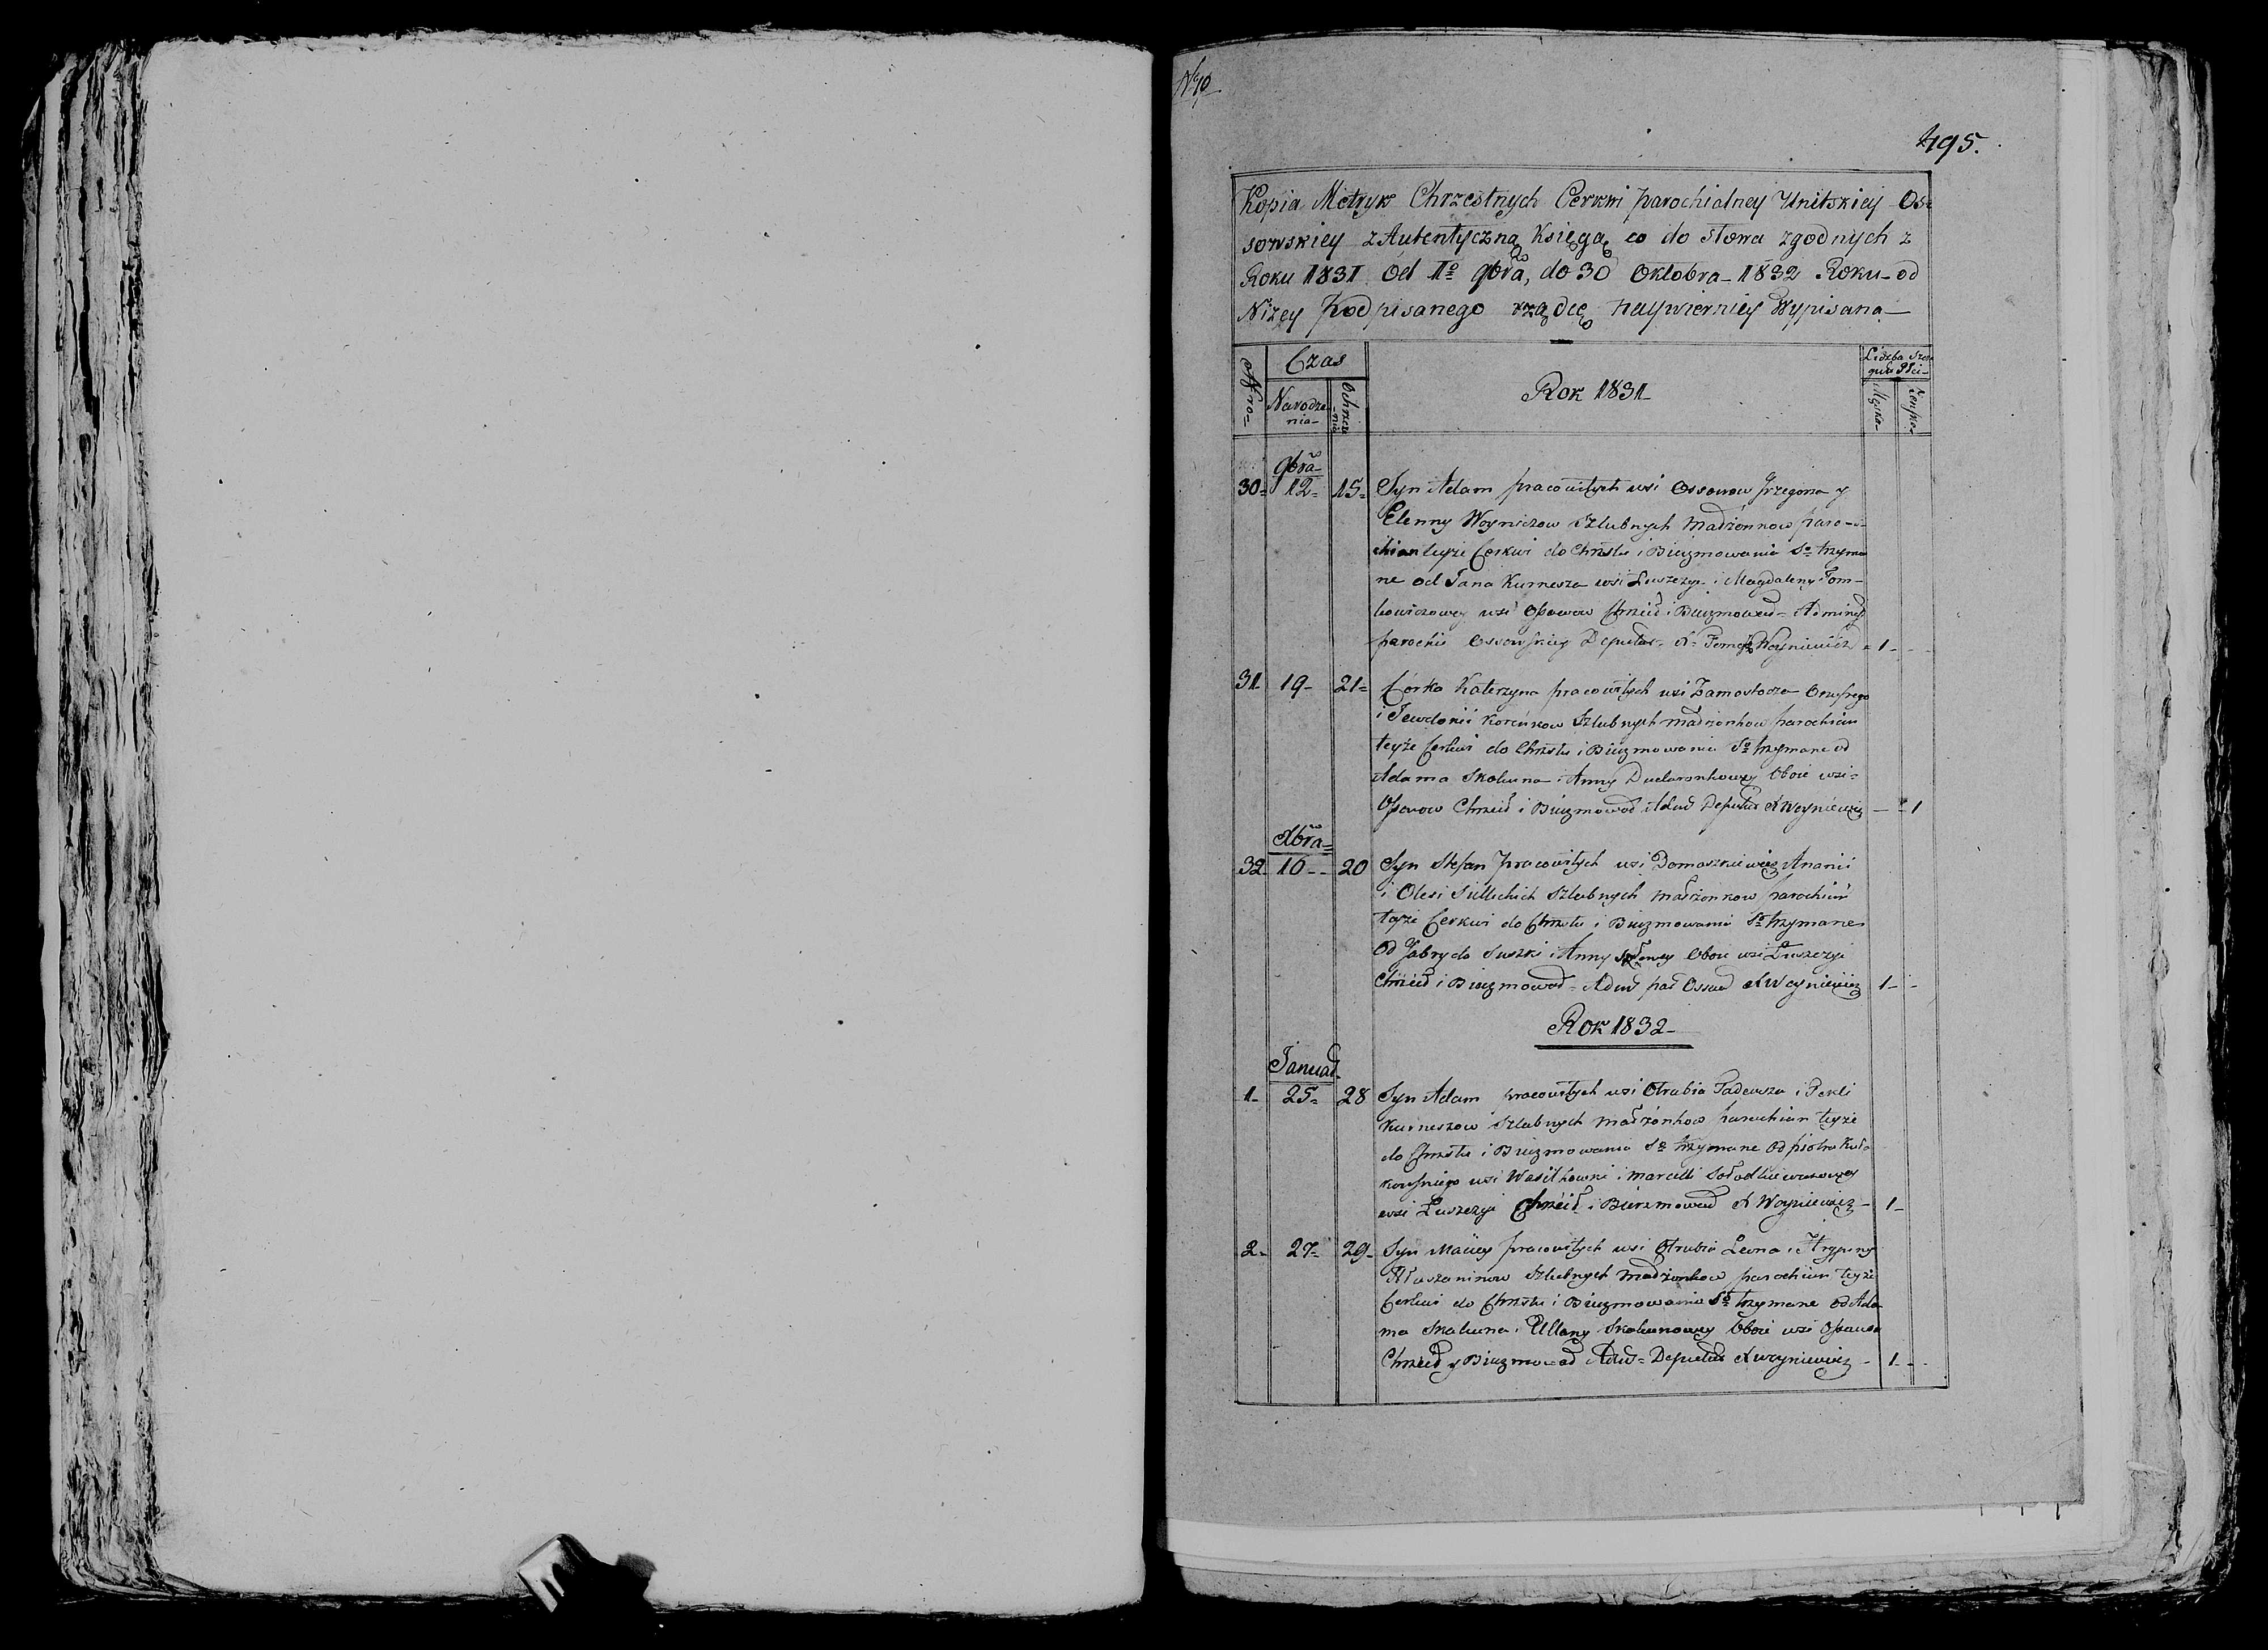 N 10
495.
Kopia Metryk Chrzestnych Cerkwi parochialney Unitskiey Os=
sowskiey z Autentyczną Księgą co do słowa zgodnych z
Roku 1831 od 1o 9bra, do 30 Oktobra 1832 Roku od
Niżey Podpisanego rządcę naywierniey Wypisana
Nro
Czas
Narodze
nia
Ochrzcze
nia
Rok 1831
Liczba
Męska
Żeńska
9bra
30 12 15 Syn Adam pracowitych wsi Ossowow Grzegorza y
Elenny Woyniczow Szlubnych Małżonkow paro-
chian teyże Cerkwi do Chrztu i Biezmowania So trzyma
ne od Jana Kurnesza wsi Łuszczyi i Magdaleny
wsi Ossowow Chrzcił i Biezmował
parochii Ossowskiey Deputat X Woyniewicz 1
31 19 21 Córka Katerzyna pracowitych wsi Zamostocza Onufrego
i Jewdonii Szlubnych Małżonkow parochian
teyże Cerkwi do Chrztu i Biezmowania So trzymane od
Adama Skakuna i Anny oboie wsi
Ossowow Chrzcił i Biezmował Adm Deputat X Woyniewicz 1
Xbra
32 16 20 Syn Stefan pracowitych wsi Domaszkiewicz Ananii
i Olesi Szlubnych Małżonkow parochian
teyże Cerkwi do Chrztu i Biezmowania So trzymane
od Gabryela Suszki i Anny oboie wsi Łuszczyi
Chrzcił i Biezmował Adm par Ossow X Woyniewicz 1
Rok 1832
Januar
1 25 28 Syn Adam pracowitych wsi Otrubia Tadeusza i Tekli
Kurneszow Szlubnych Małżonkow parochian teyże
do Chrztu i Biezmowania So trzymane od Piotra
wsi Wasilkowki i Marcelli
wsi Łuszczyi Chrzcił i Bierzmował X Woyniewicz 1
2 27 29 Syn Maciey pracowitych wsi Otrubia Leona i Agrypiny
Szlubnych Małżonkow parochian teyże
Cerkwi do Chrztu i Biezmowania So trzymane od Ada
ma Skakuna i Ullany Skakunowey oboie wsi Ossowa
Chrzcił y Biezmował Adm Deputat X Woyniewicz 1